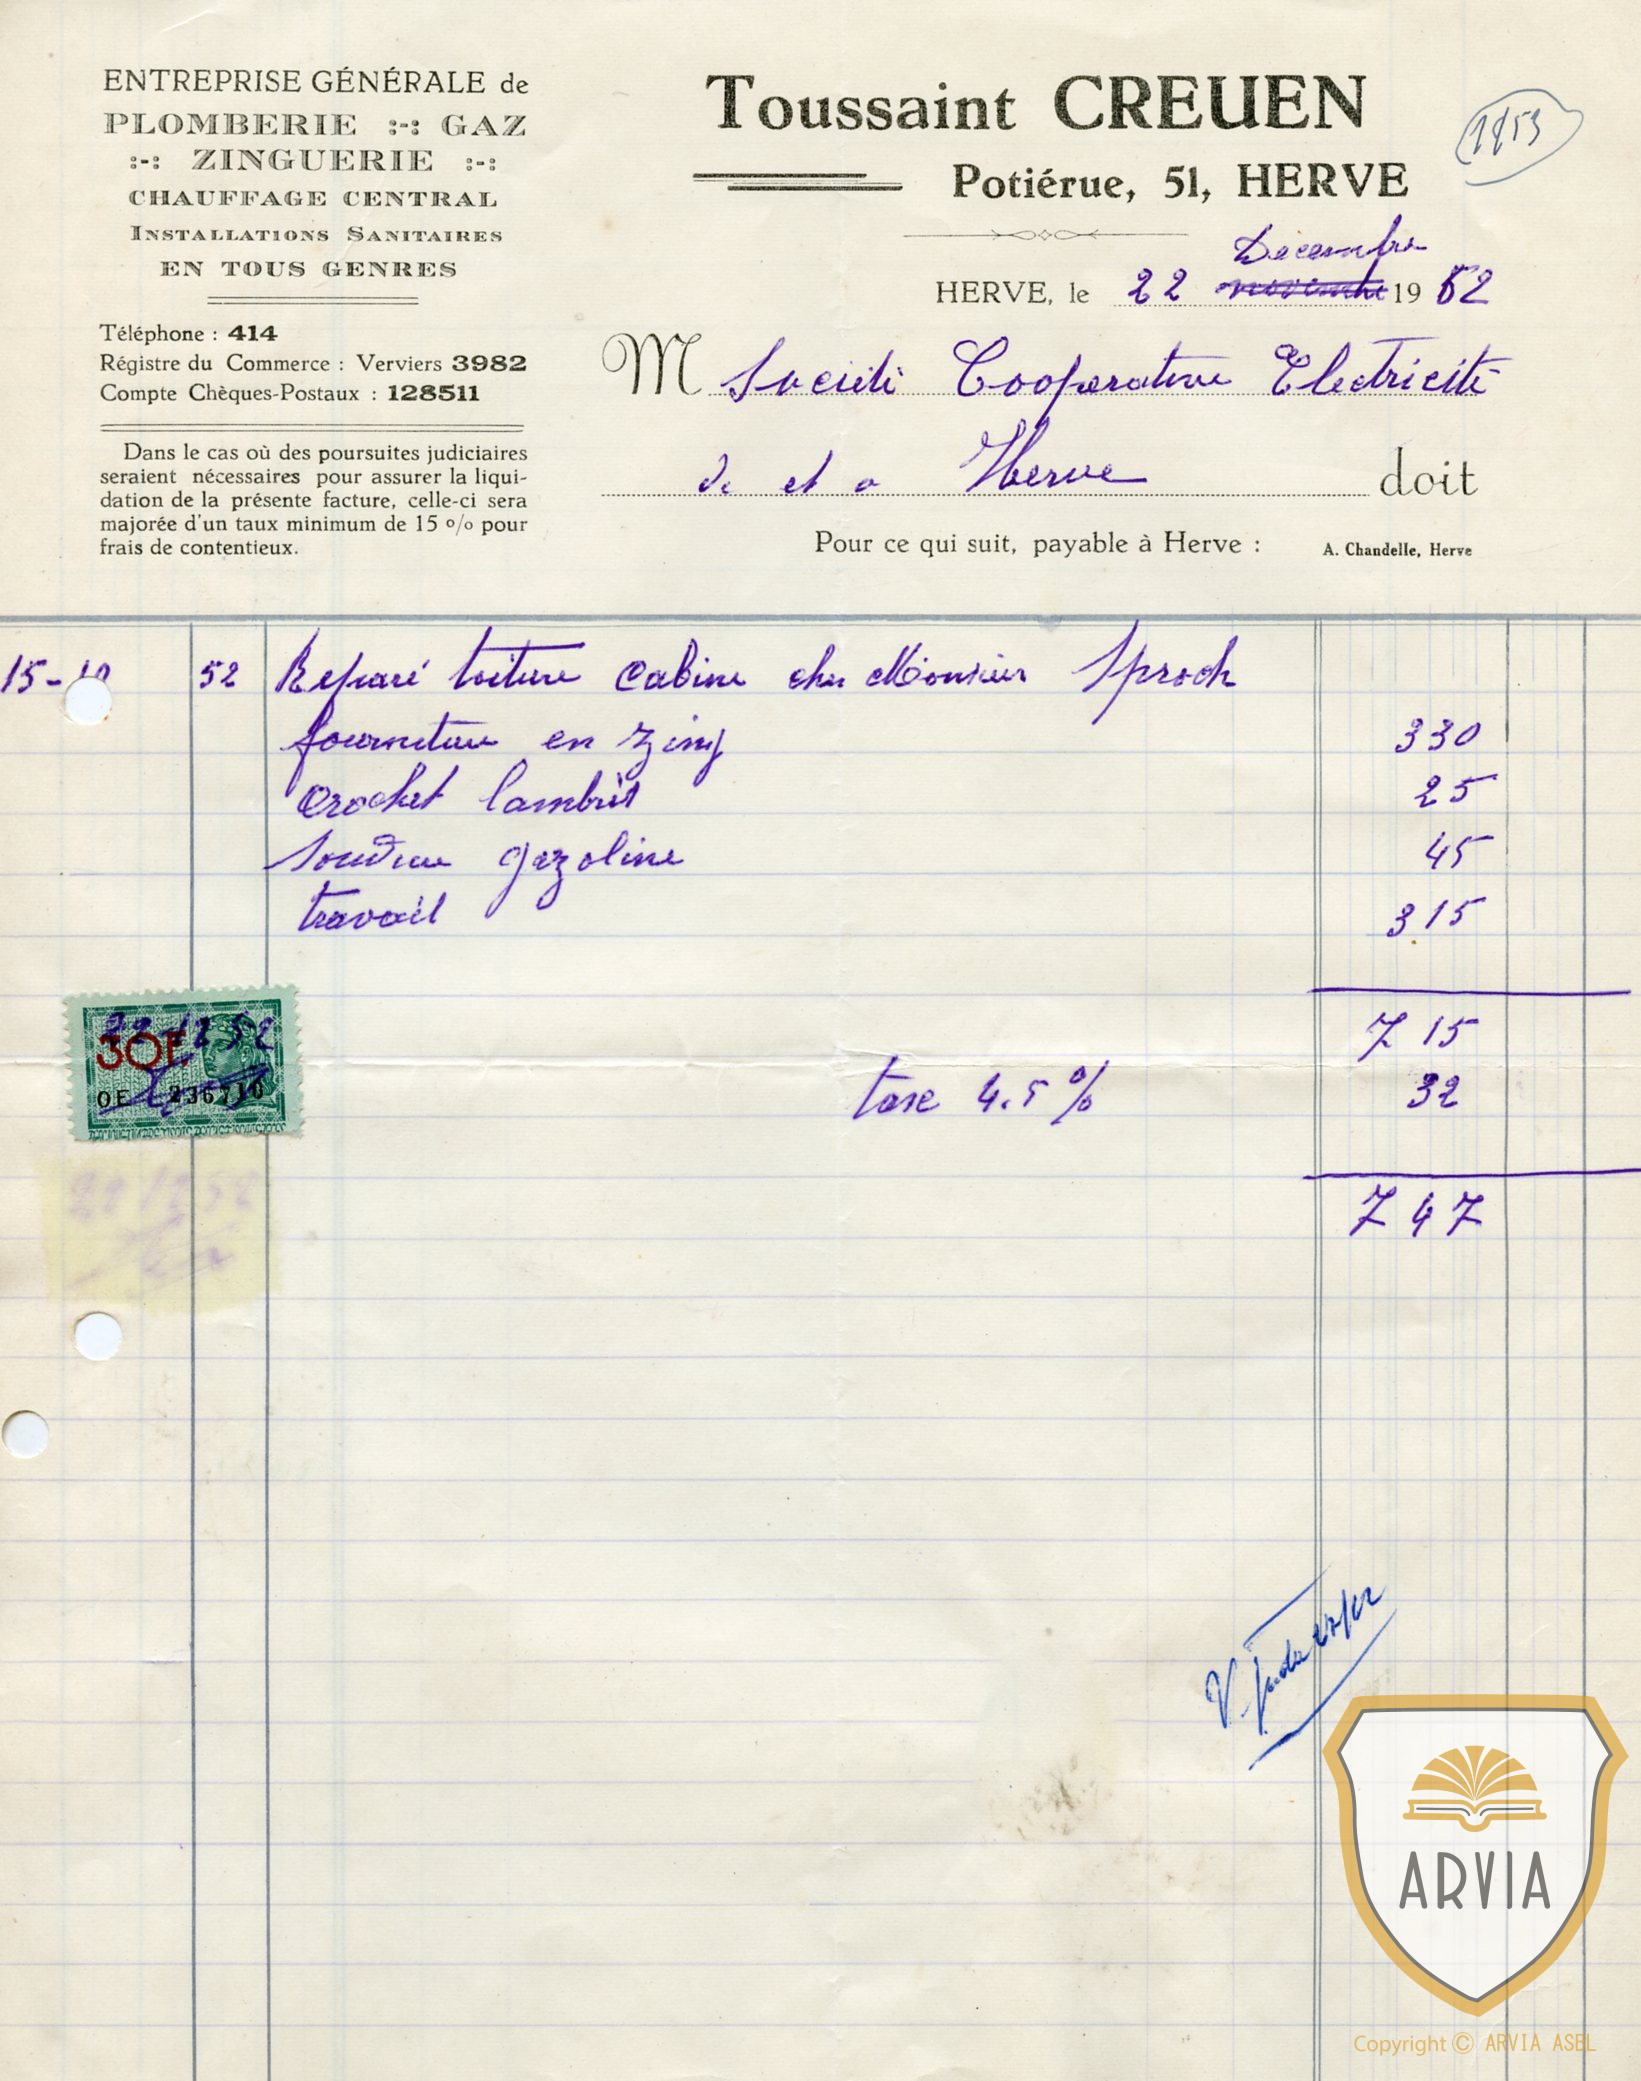 ENTREPRISE GÉNÉRALE de
PLOMBERIE :-: GAZ
:-: ZINGUERIE :-:
CHAUFFAGE CENTRAL
INSTALLATIONS SANITAIRES
EN TOUS GENRES
Téléphone : 414
Régistre du Commerce : Verviers 3982
Compte Chèques-Postaux : 128511
Dans le cas où des poursuites judiciaires
seraient nécessaires pour assurer la liqui-
dation de la présente facture, celle-ci sera
majorée d'un taux minimum de 15 o/o pour
frais de contentieux.
Toussaint CREUEN
Potiérue, 51, HERVE
1153
Décembre
HERVE, le 22 novembre 1952
M Société Cooperative Electricité
de et a Herve doit
Pour ce qui suit, payable à Herve :
A. Chandelle, Herve
15- 52 Reparé toiture cabine chez Monsieur Sproch
fourniture en zing 330
crochet lambris 25
soudure gazoline 45
travail 315
715
taxe 4.5 % 32
747
22 12 52
30F
OE 236710
22 12 52
ARVIA
Copyright © ARVIA ASBL